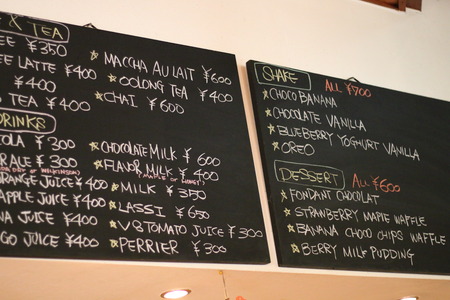 & TEA
EE ¥350
EE LATTE ¥400
¥400
TEA ¥400
MACCHA AU LAIT ¥600
OOLONG TEA ¥400
CHAI ¥600
DRINKS
OLA ¥300
RALE ¥300
ORANGE JUICE ¥400
APPLE JUICE ¥400
NA JUICE ¥400
GO JUICE ¥400
CHOCOLATE MILK ¥600
FLAVOR MILK ¥400
MILK ¥350
LASSI ¥650
V8 TOMATO JUICE ¥300
PERRIER ¥300
SHAKE ALL ¥700
CHOCO BANANA
CHOCOLATE VANILLA
BLUEBERRY YOGHURT VANILLA
OREO
DESSERT ALL ¥600
FONDANT CHOCOLAT
STRANBERRY MAPLE WAFFLE
BANANA CHOCO CHIPS WAFFLE
BERRY MILK PUDDING